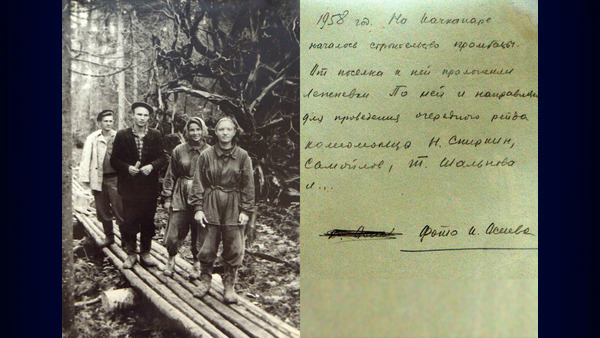 1958 год. На Качканаре
началось строительство промбазы.
От поселка к ней проложили
Лежневки. По ней и направл
для проведения очередного рейда
комсомольца Н. Спиркин,
Самойлов, Т. Шальнова
и...
Фото И. Асеева